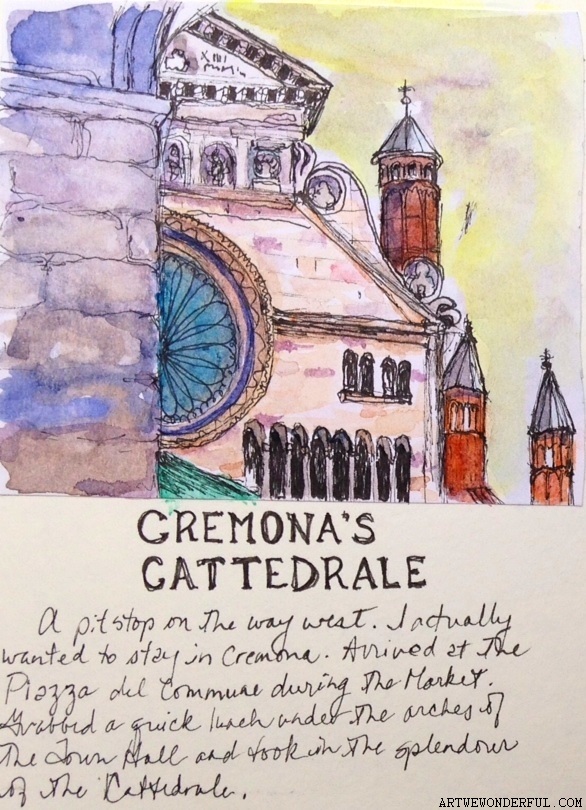 XIII
CREMONA'S
CATTEDRALE
A pit stop on the way west. I actually
wanted to stay in Cremona. Arrived at the
Piazza del Commune during the Market.
Grabbed a quick lunch under the arches of
the Town Hall and took in the splendour
of the Cattedrale.
ARTWEWONDERFUL.COM